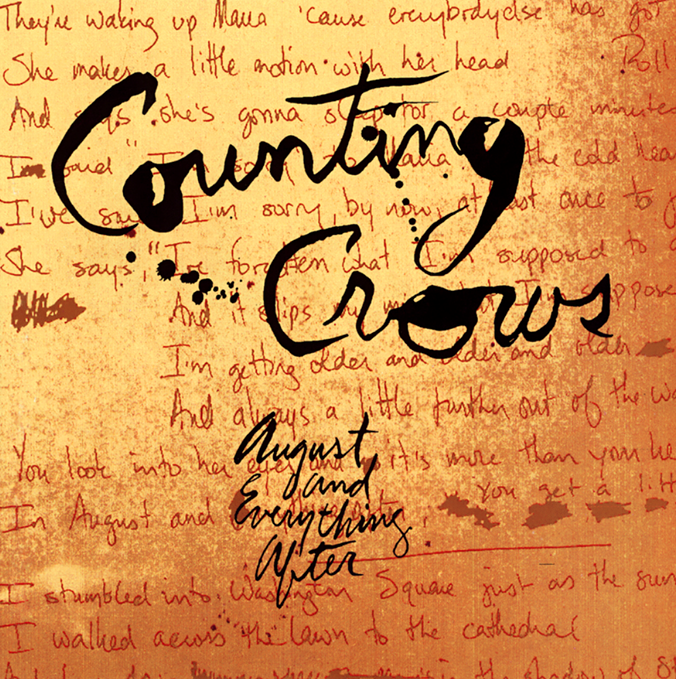 They're waking up Maria 'cause everybody else has got
She makes a little motion with her head
Roll
And says she's gonna sleep for a couple minutes
I'm said "I'm sorry" to Maria the cold hear
I've say I'm sorry, by now, at least once to
She says, "I've forgotten what I'm supposed to
And it slips my mind I'm suppose
I'm getting older and older and older
And always a little further out of the wa
You look into her eyes and it's more than your he
You get a litt
In August and Everything
I stumbled into Washington Square just as the sun
I walked across the lawn to the cathedral
in the shadow of St
Counting
Crows
August
and
Everything
After